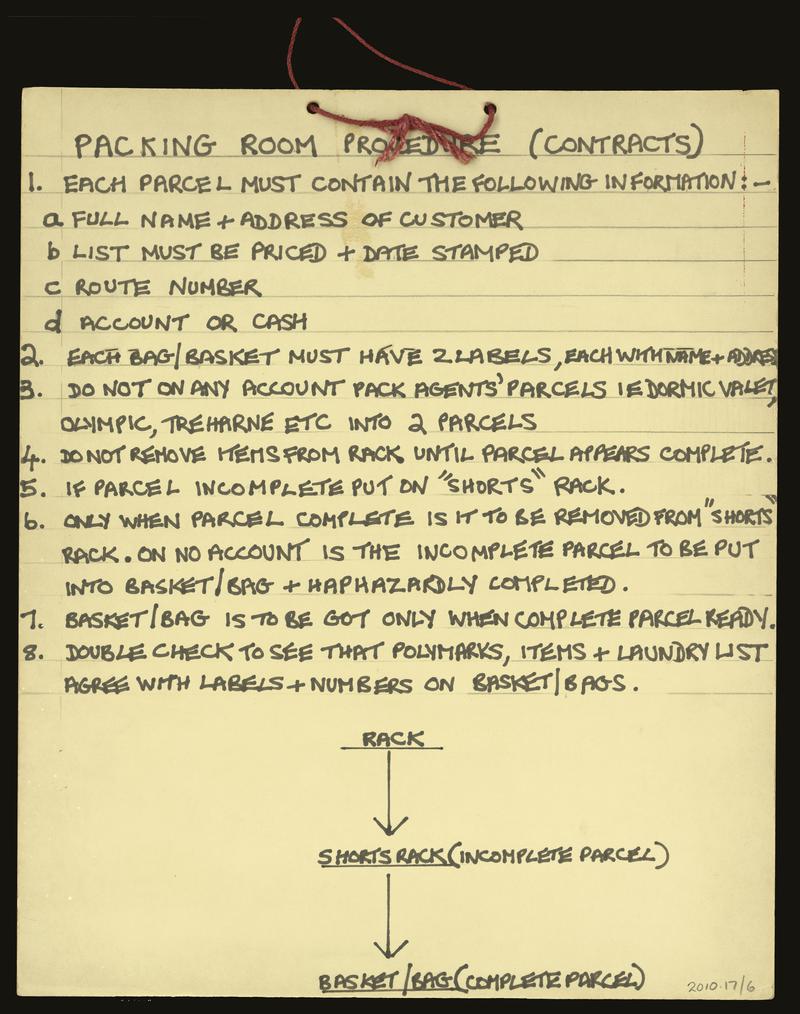 PACKING ROOM PROCEDURE (CONTRACTS)
1. EACH PARCEL MUST CONTAIN THE FOLLOWING INFORMATION:-
a FULL NAME + ADDRESS OF CUSTOMER
b LIST MUST BE PRICED + DATE STAMPED
c ROUTE NUMBER
d ACCOUNT OR CASH
2. EACH BAG/BASKET MUST HAVE 2 LABELS, EACH WITH NAME + ADDRESS
3. DO NOT ON ANY ACCOUNT PACK AGENTS' PARCELS IE DORMIC VALET,
OLYMPIC, TREHARNE ETC INTO 2 PARCELS
4. DO NOT REMOVE ITEMS FROM RACK UNTIL PARCEL APPEARS COMPLETE.
5. IF PARCEL INCOMPLETE PUT ON "SHORTS" RACK.
6. ONLY WHEN PARCEL COMPLETE IS IT TO BE REMOVED FROM "SHORTS"
RACK. ON NO ACCOUNT IS THE INCOMPLETE PARCEL TO BE PUT
INTO BASKET/BAG + HAPHAZARDLY COMPLETED.
7. BASKET/BAG IS TO BE GOT ONLY WHEN COMPLETE PARCEL READY.
8. DOUBLE CHECK TO SEE THAT POLYMARKS, ITEMS + LAUNDRY LIST
AGREE WITH LABELS + NUMBERS ON BASKET/BAGS.
RACK
SHORTS RACK (INCOMPLETE PARCEL)
BASKET/BAG (COMPLETE PARCEL)
2010.17/6